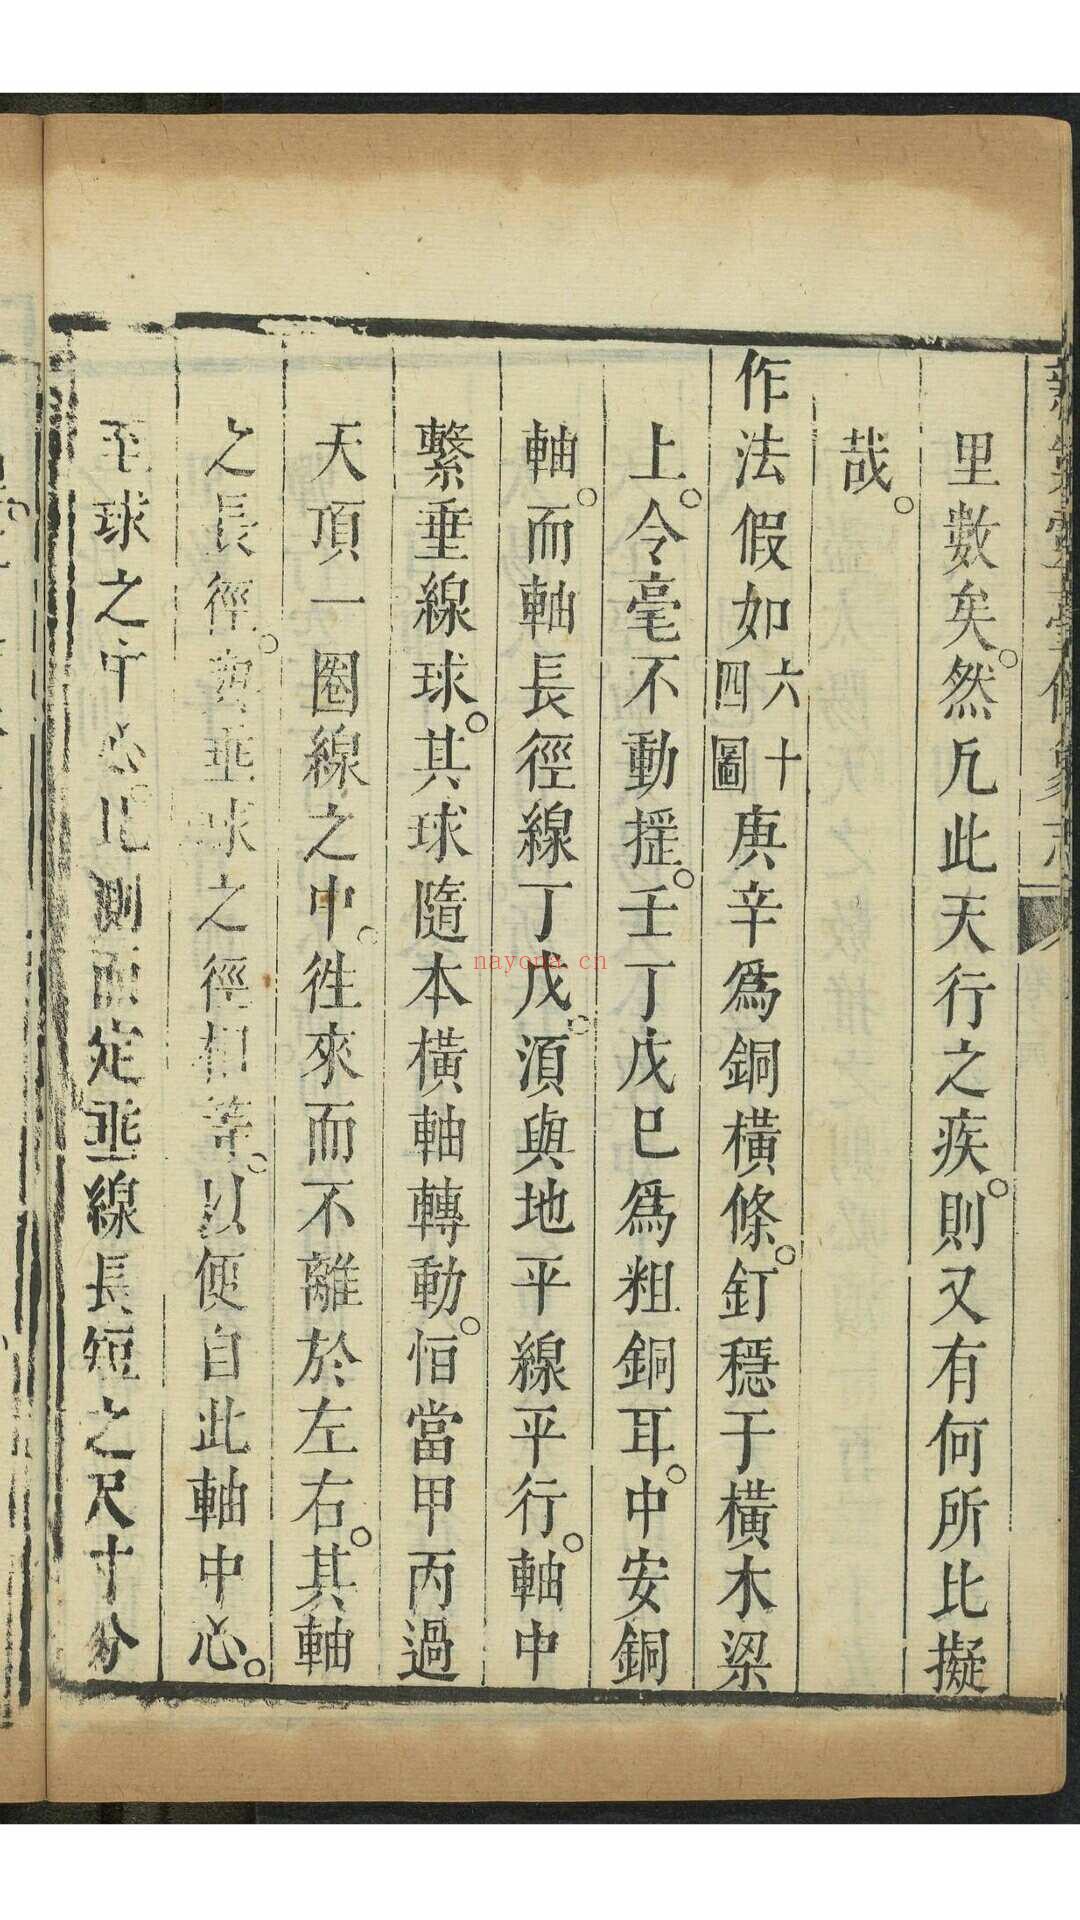 新製靈臺儀象志
里數矣。然凡此天行之疾。則又有何所比擬
哉。
作法假如六十四圖庚辛爲銅橫條。釘穩于橫木梁
上。令毫不動搖。壬丁戊巳爲粗銅耳。中安銅
軸。而軸長徑線丁戊。須與地平線平行。軸中
繫垂線球。其球隨本橫軸轉動。恒當甲丙過
天頂一圈線之中。徃來而不離於左右。其軸
之長徑。與垂球之徑相等。以便自此軸中心。
至球之中心。比測而定垂線長短之尺寸分
nayona.cn